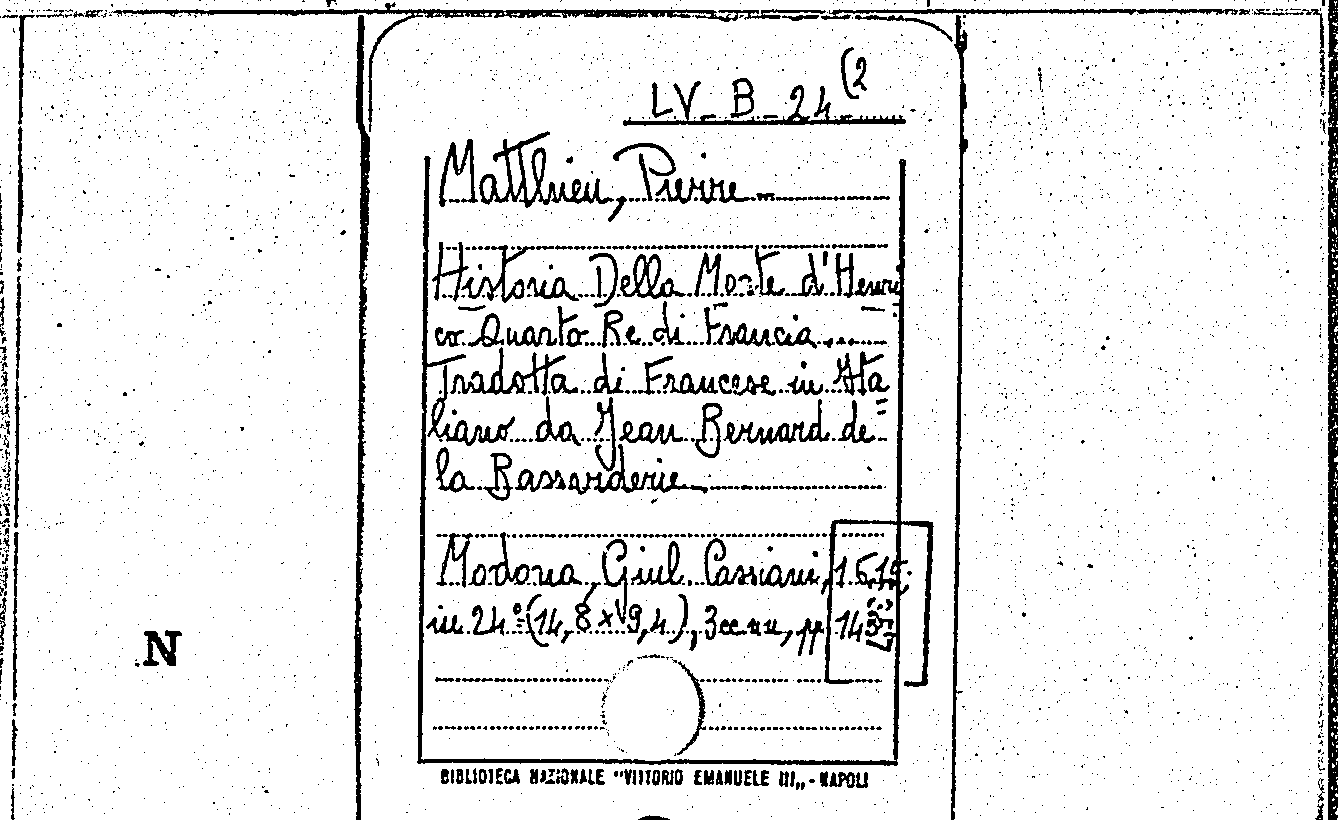 LV_B_24(2
Matthieu, Pierre_
Historia Della Morte d'Henri
co Quarto Re di Francia...
Tradotta di Francese in Ita=
liano da Jean Bernard de
la Bassarderie_
Modona, Giul Cassiani, 1615;
in 24º (14,8 x 9,4), 3 cc nn, pp
N
BIBLIOTECA NAZIONALE "VITTORIO EMANUELE III„ - NAPOLI